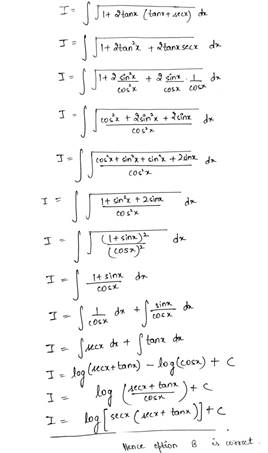 I = ∫ √(1 + 2tanx (tanx + secx)) dx
I = ∫ √(1 + 2tan²x + 2tanx secx) dx
I = ∫ √(1 + 2 sin²x/cos²x + 2 sinx/cosx · 1/cosx) dx
I = ∫ √((cos²x + 2sin²x + 2sinx)/cos²x) dx
I = ∫ √((cos²x + sin²x + sin²x + 2sinx)/cos²x) dx
I = ∫ √((1 + sin²x + 2sinx)/cos²x) dx
I = ∫ √((1 + sinx)²/(cosx)²) dx
I = ∫ (1 + sinx)/cosx dx
I = ∫ 1/cosx dx + ∫ sinx/cosx dx
I = ∫ secx dx + ∫ tanx dx
I = log(secx + tanx) - log(cosx) + C
I = log ((secx + tanx)/cosx) + C
I = log[secx (secx + tanx)] + C
Hence option B is correct.